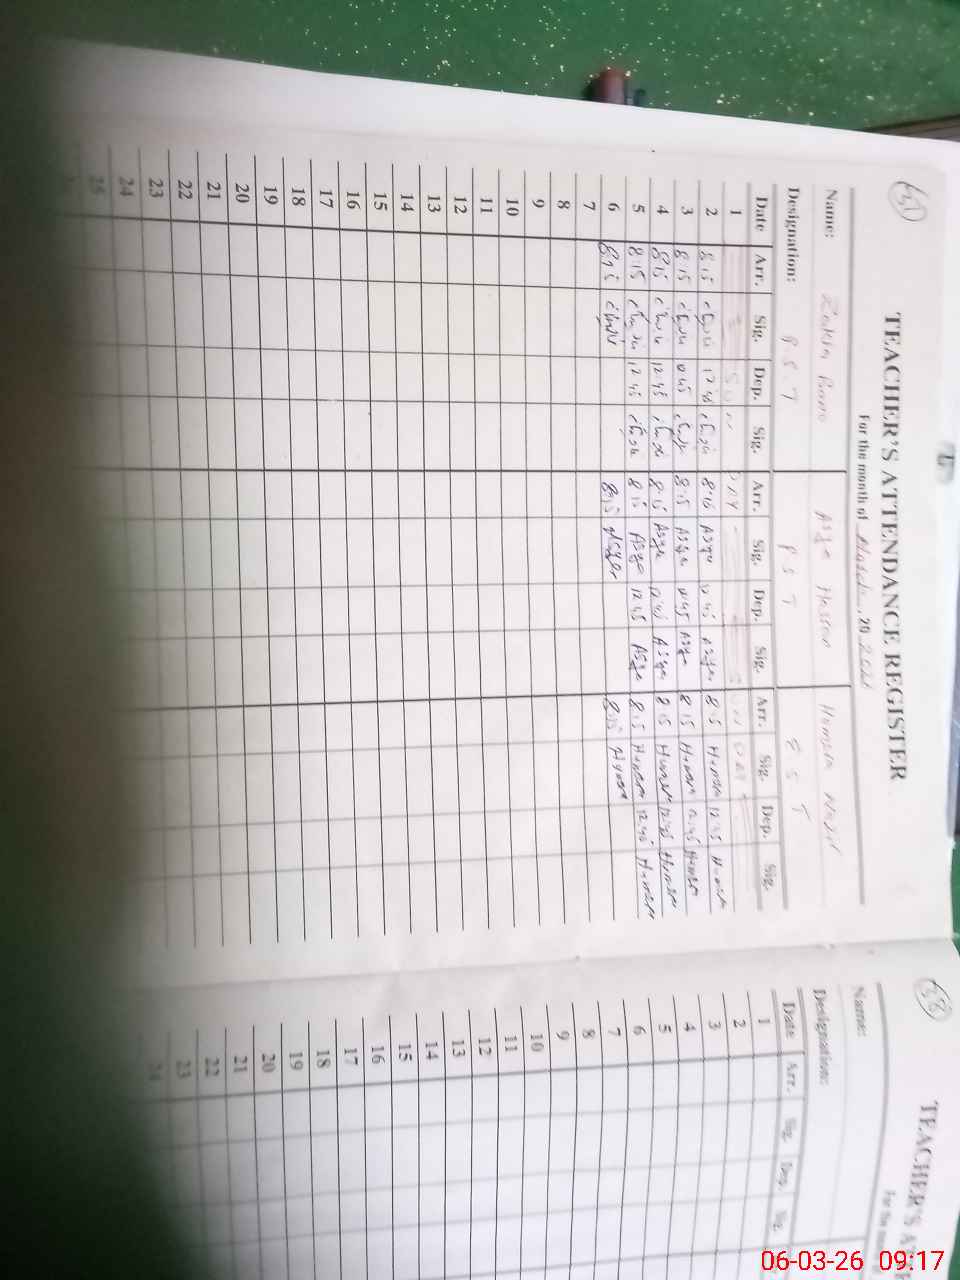 TEACHER'S ATTENDANCE REGISTER
For the month of March, 20 2026
Name: Zakia Bano Asya Hassan Humaira Nazir
Designation: P.S.T P S T E S T
Date Arr. Sig. Dep. Sig. Arr. Sig. Dep. Sig. Arr. Sig. Dep. Sig.
1 SUN DAY SUN DAY
2 8:15 12:45 8:15 Asya 12:45 Asya 8:15 12:45
3 8:15 12:45 8:15 Asya 12:45 Asya 8:15 12:45
4 8:15 12:45 8:15 Asya 12:45 Asya 8:15 12:45
5 8:15 12:45 8:15 Asya 12:45 Asya 8:15 12:45
6 8:15 8:15 Asya 8:15
7
8
9
10
11
12
13
14
15
16
17
18
19
20
21
22
23
24
25
TEACHER'S
For the
Name:
Designation:
Date Arr. Sig. Dep. Sig.
1
2
3
4
5
6
7
8
9
10
11
12
13
14
15
16
17
18
19
20
21
22
23
24
06-03-26 09:17